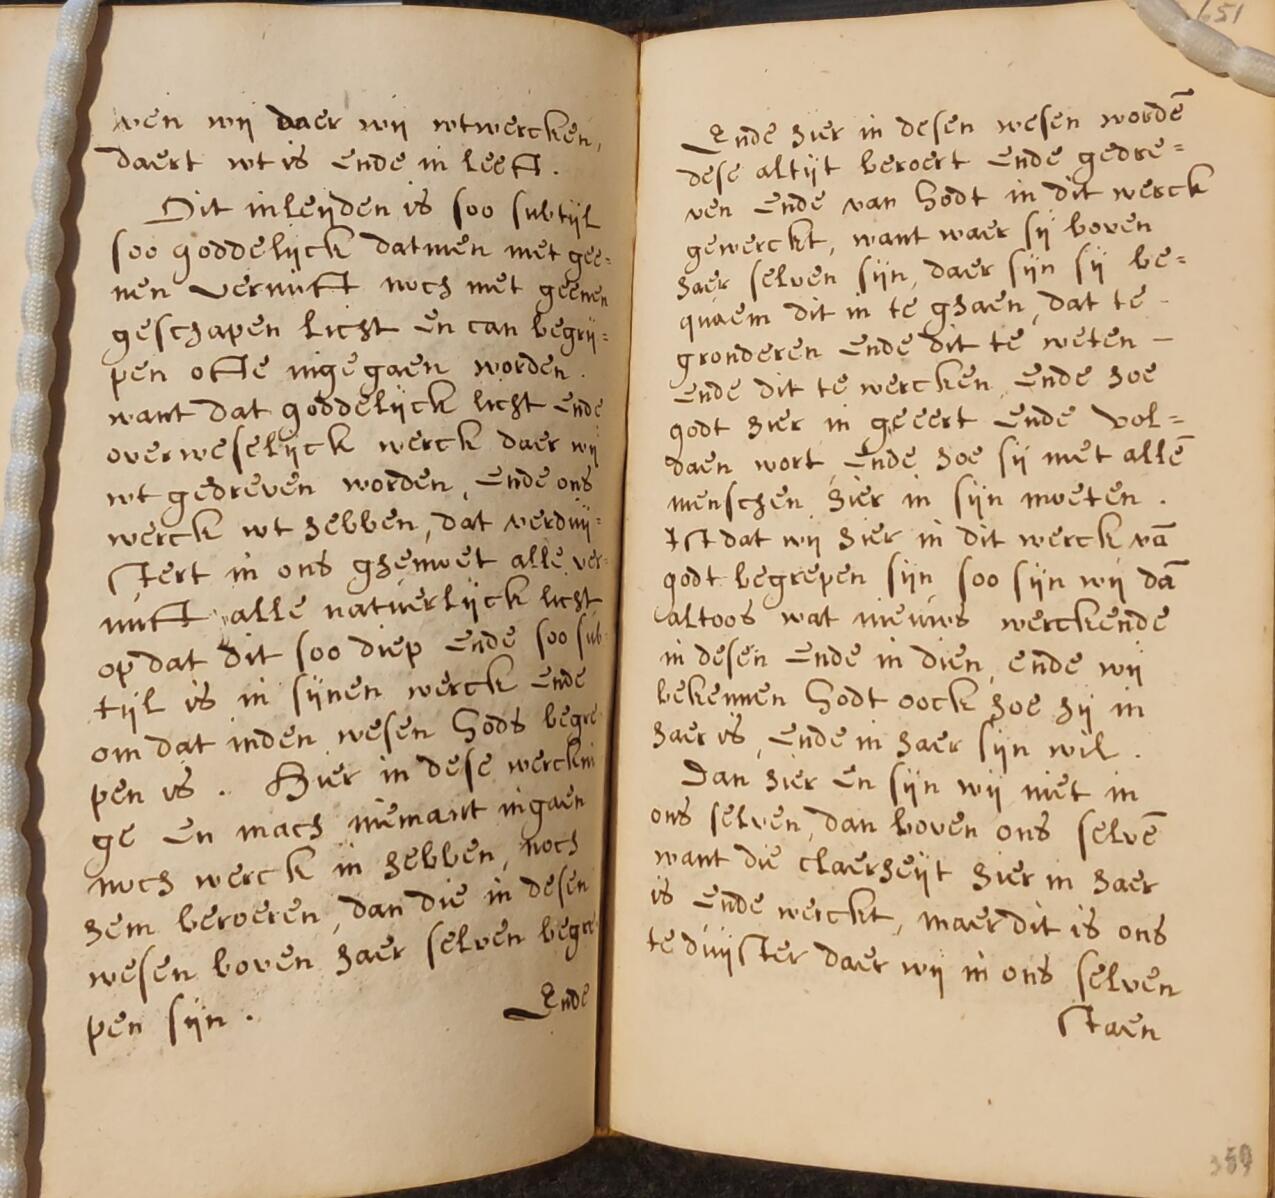 wen wij daer wij wtwercken,
daert wt is ende in leeft.
Dit inleijden is soo subtijl
soo goddelijck datmen met gee=
nen vernuft noch met geenen
geschapen licht en can begrij=
pen ofte ingegaen worden.
want dat goddelijck licht ende
overweselijck werck daer wij
wt gedreven worden, ende ons
werck wt hebben, dat verduij=
stert in ons ghemoet alle ver=
nuft alle natuerlijck licht
op dat dit soo diep ende soo sub
tijl is in sijnen werck ende
om dat inden wesen Gods begre
pen is. Hier in dese werckin
ge en mach niemant ingaen
noch werck in hebben, noch
hem beroeren, dan die in desen
wesen boven haer selven begre
pen sijn.
Ende
651
Ende hier in desen wesen wordē
dese altijt beroert ende gedre=
ven ende van Godt in dit werck
gewerckt, want waer sij boven
haer selven sijn, daer sijn sij be=
quaem dit in te ghaen, dat te
gronderen ende dit te weten —
ende dit te wercken, ende hoe
godt hier in geeert ende vol=
daen wort, ende hoe sij met allē
menschen hier in sijn moeten.
Ist dat wij hier in dit werck vā
godt begrepen sijn, soo sijn wij dā
altoos wat nieuws werckende
in desen ende in dien, ende wij
bekennen Godt oock hoe hij in
haer is, ende in haer sijn wil.
Dan hier en sijn wij niet in
ons selven, dan boven ons selvē
want die claerheijt hier in haer
is ende werckt, maer dit is ons
te duijster daer wij in ons selven
staen
359